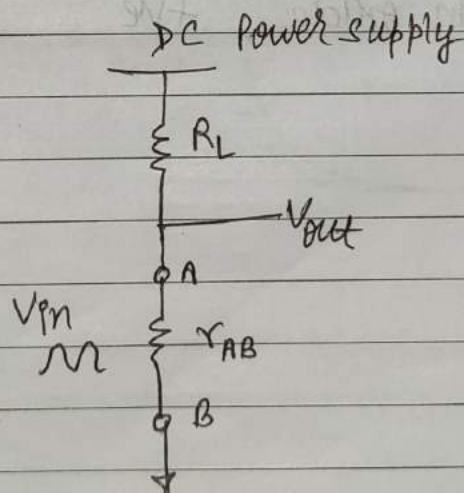 DC Power supply
RL
Vout
A
Vin
rAB
B